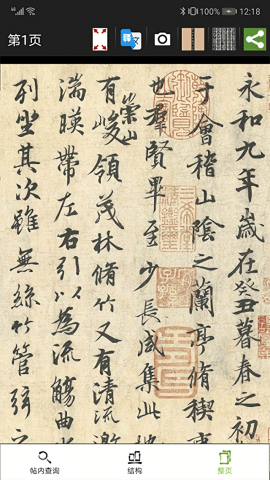 12:18
第1页
永和九年歲在癸丑暮春之初
于會稽山陰之蘭亭脩禊事
也羣賢畢至少長咸集此地
有崇山峻領茂林脩竹又有清流激
湍暎帶左右引以為流觴曲水
列坐其次雖無絲竹管弦之
帖内查询
结构
整页